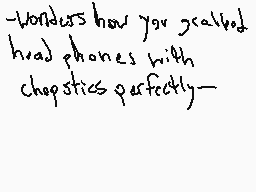 -wonders how you grabbed
head phones with
chopstics perfectly-